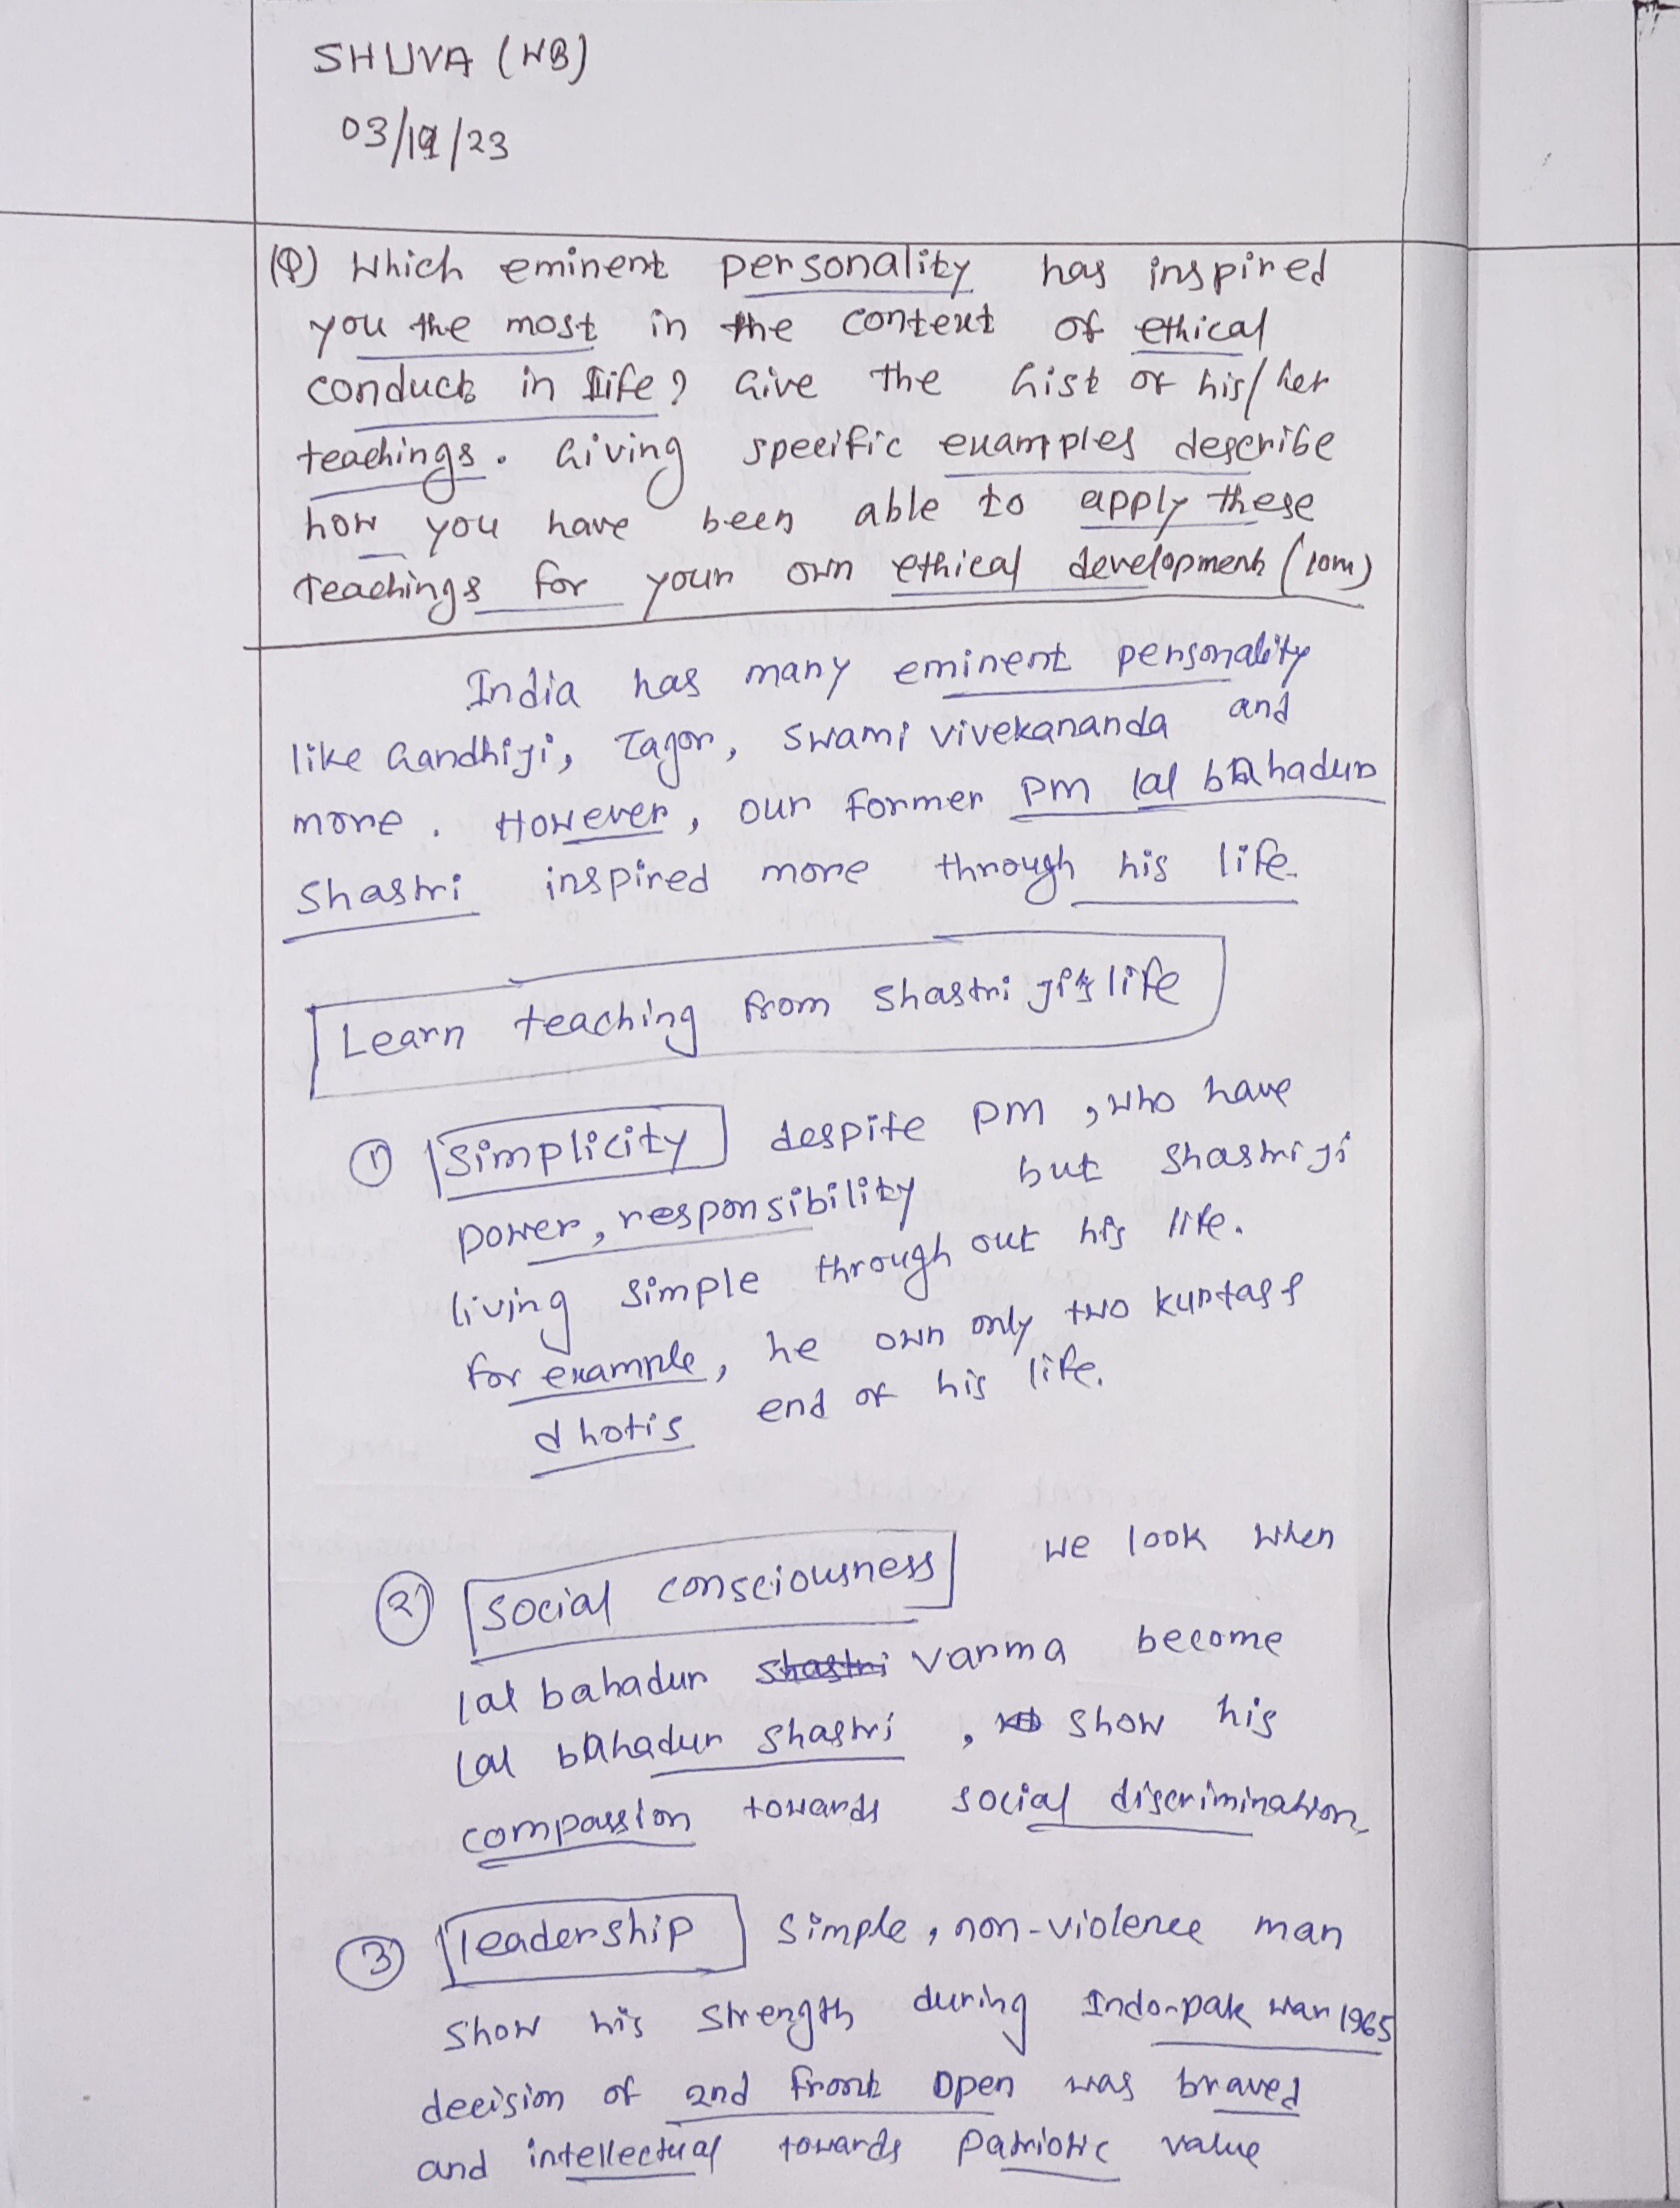 SHUVA (WB)
03/19/23
(Q) Which eminent personality has inspired
you the most in the context of ethical
conduct in life? Give the gist of his/her
teachings. Giving specific examples describe
how you have been able to apply these
teachings for your own ethical development (10m)
India has many eminent personality
like Gandhiji, Tagor, Swami Vivekananda and
more. However, our former PM lal bahadur
Shastri inspired more through his life.
Learn teaching from Shastri ji's life
① Simplicity despite PM, who have
power, responsibility but Shastri ji
living simple through out his life.
for example, he own only two kurtas &
dhotis end of his life.
② Social consciousness we look when
lal bahadur Shastri varma become
Lal bahadur Shastri, show his
compassion towards social discrimination
③ leadership Simple, non-violence man
Show his strength during Indo-pak war 1965
decision of 2nd front open was braved
and intellectual towards patriotic value